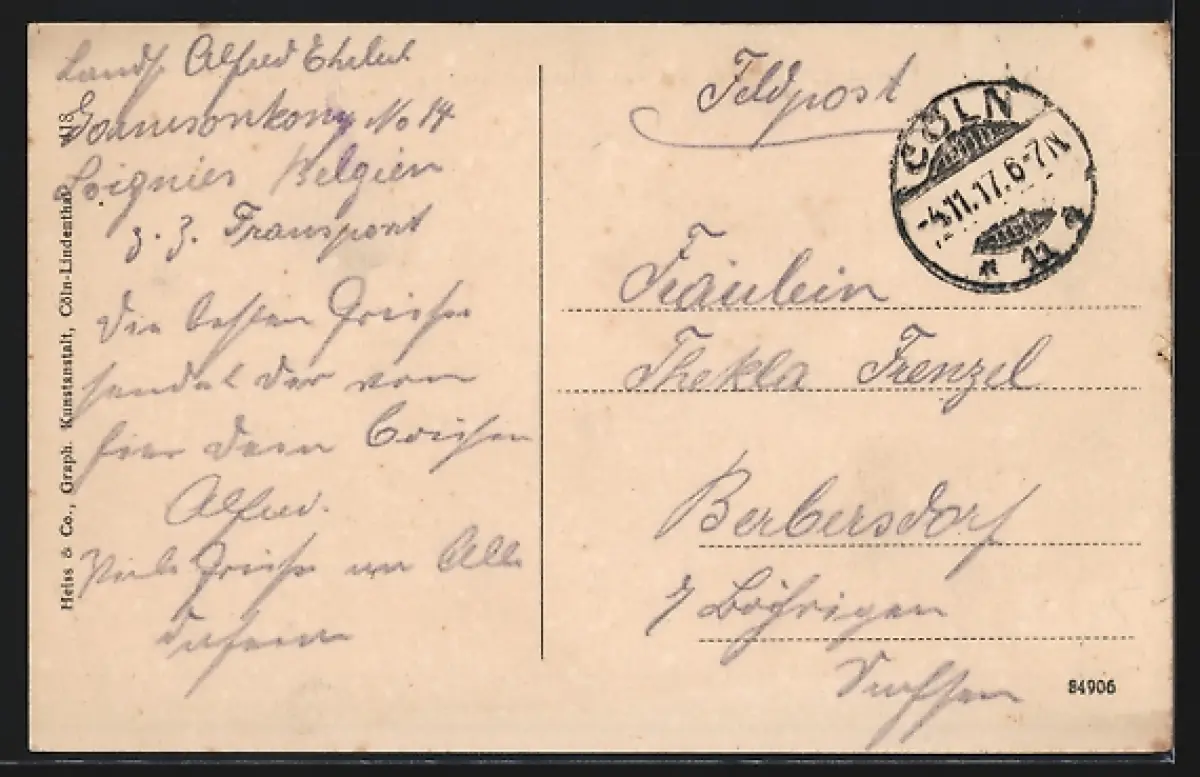 Landst. Alfred Ehrlich
Garnisonkomp No 14
Soignies Belgien
z. Z. Transport
Die besten Grüße
sendet Dir von
hier Dein
Alfred.
Viele Grüße an Alle
daheim
Heiss & Co., Graph. Kunstanstalt, Cöln-Lindenthal
418
Feldpost
CÖLN
-4.11.17. 6-7N
* 11 a
Fräulein
Thekla Frenzel
Berbersdorf
b/ Böhrigen
Sachsen
84906